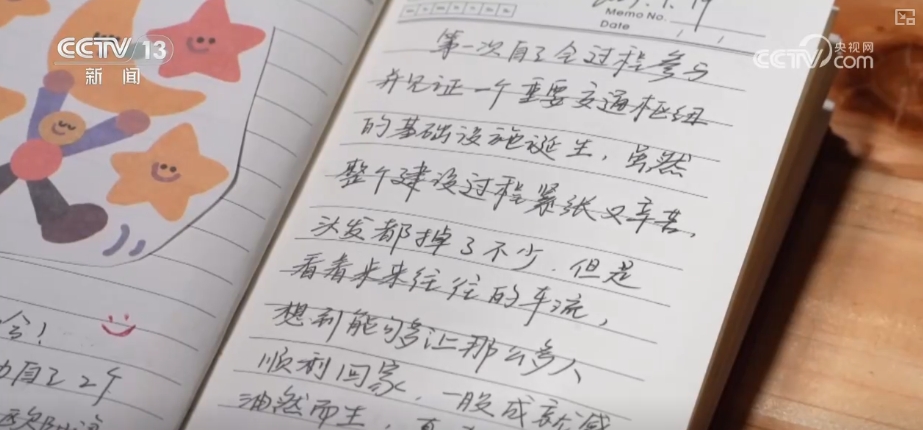 CCTV 13
新闻
央视网
CCTV.com
Memo No.
Date
第一次自己全过程参与
并见证一个重要交通枢纽
的基础设施诞生，虽然
整个建设过程紧张又辛苦，
头发都掉了不少，但是
看着来来往往的车流，
想到能够多让那么多人
顺利回家，一股成就感
油然而生，